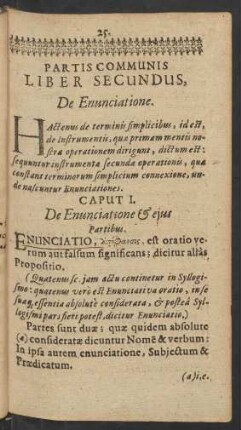 25.
PARTIS COMMUNIS
LIBER SECUNDUS,
De Enunciatione.
HActenus de terminis simplicibus, id est,
de Instrumentis, quæ primam mentis no-
stræ operationem dirigunt, dictum est:
sequuntur instrumenta secundæ operationis, quæ
constans terminorum simplicium connexione, un-
de nascuntur Enunciationes.
CAPUT I.
De Enunciatione & ejus
Partibus.
ENUNCIATIO, est oratio ve-
rum aut falsum significans; dicitur aliàs
Propositio.
(Quatenus sc. jam actu continetur in Syllogis-
mo: quatenus verò est Enunciativa oratio, in se
suaq; essentia absolutè considerata, & posteà Syl-
logismi pars fieri potest, dicitur Enunciatio.)
Partes sunt duæ; quæ quidem absolute
(a) consideratæ dicuntur Nomē & verbum:
In ipsa autem enunciatione, Subjectum &
Prædicatum.
(a) i. e.